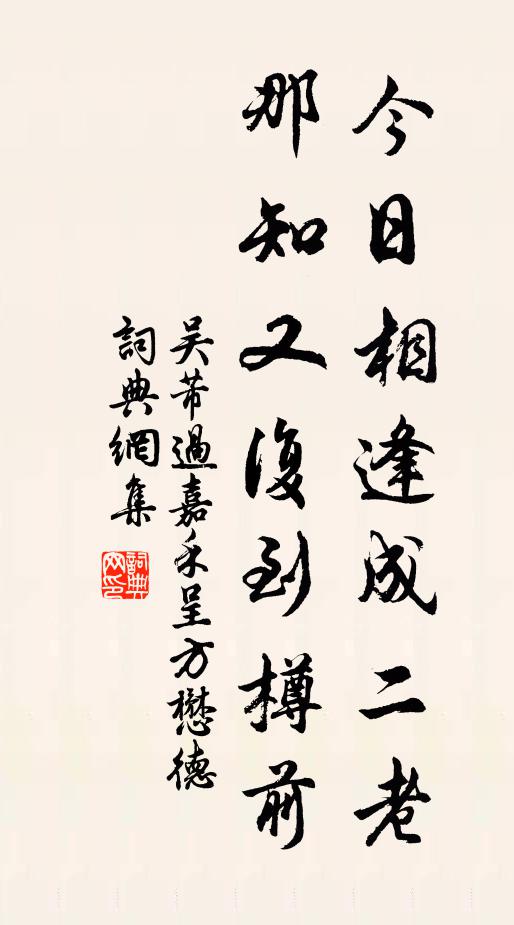 今日相逢成二老
那知又復到樽前
吴芾過嘉禾呈方懋德
詞典網集
詞典
网印